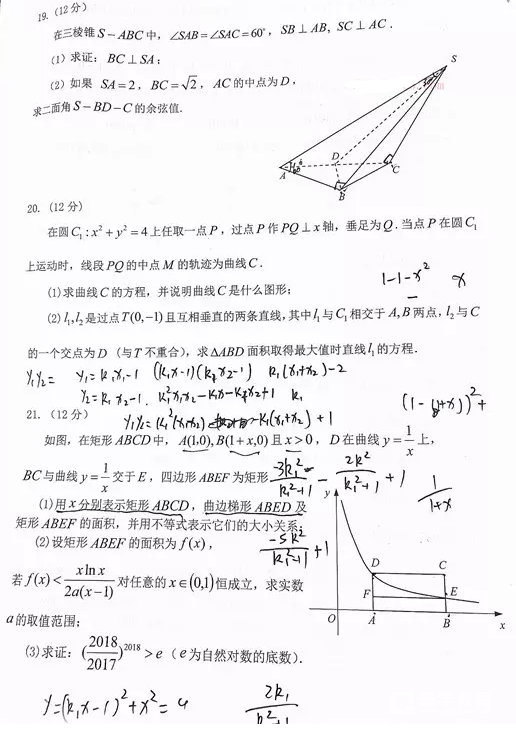 19. (12分)
在三棱锥 S－ABC 中，∠SAB=∠SAC=60°，SB⊥AB, SC⊥AC．
(1) 求证：BC⊥SA；
(2) 如果 SA=2，BC=√2，AC的中点为D，
求二面角 S－BD－C 的余弦值．
S
D
A
C
B
20. (12分)
在圆 C₁: x²+y²=4 上任取一点 P，过点 P 作 PQ⊥x 轴，垂足为 Q．当点 P 在圆 C₁
上运动时，线段 PQ 的中点 M 的轨迹为曲线 C．
1-1-x² x
(1)求曲线 C 的方程，并说明曲线 C 是什么图形；
(2) l₁,l₂ 是过点 T(0,−1) 且互相垂直的两条直线，其中 l₁ 与 C₁ 相交于 A,B 两点，l₂ 与 C
的一个交点为 D（与 T 不重合），求 ΔABD 面积取得最大值时直线 l₁ 的方程．
y₁y₂= y₁=k₁x₁-1 (k₁x-1)(k₁x₂-1) k₁(x₁+x₂)-2
y₂=k₁x₂-1. k₁²x₁x₂-k₁x-k₁x₂+1 k₁
21. (12分)
y₁y₂=k₁²(x₁x₂) -k₁(x₁+x₂)+1
如图，在矩形 ABCD 中，A(1,0), B(1+x,0) 且 x>0，D 在曲线 y=1/x 上，
BC 与曲线 y=1/x 交于 E，四边形 ABEF 为矩形．
-3k₁²/k₁²+1 - 2k²/k₁²+1 +1
1/1+x
(1)用 x 分别表示矩形 ABCD，曲边梯形 ABED 及
矩形 ABEF 的面积，并用不等式表示它们的大小关系；
(2)设矩形 ABEF 的面积为 f(x)，
-5k²/k₁²-1 +1
若 f(x)< xlnx/2a(x−1) 对任意的 x∈(0,1) 恒成立，求实数
a 的取值范围；
(3)求证：(2018/2017)²⁰¹⁸>e（e 为自然对数的底数）．
y
D
C
F
E
O
A
B
x
y=(k₁x-1)²+x²=4
2k₁